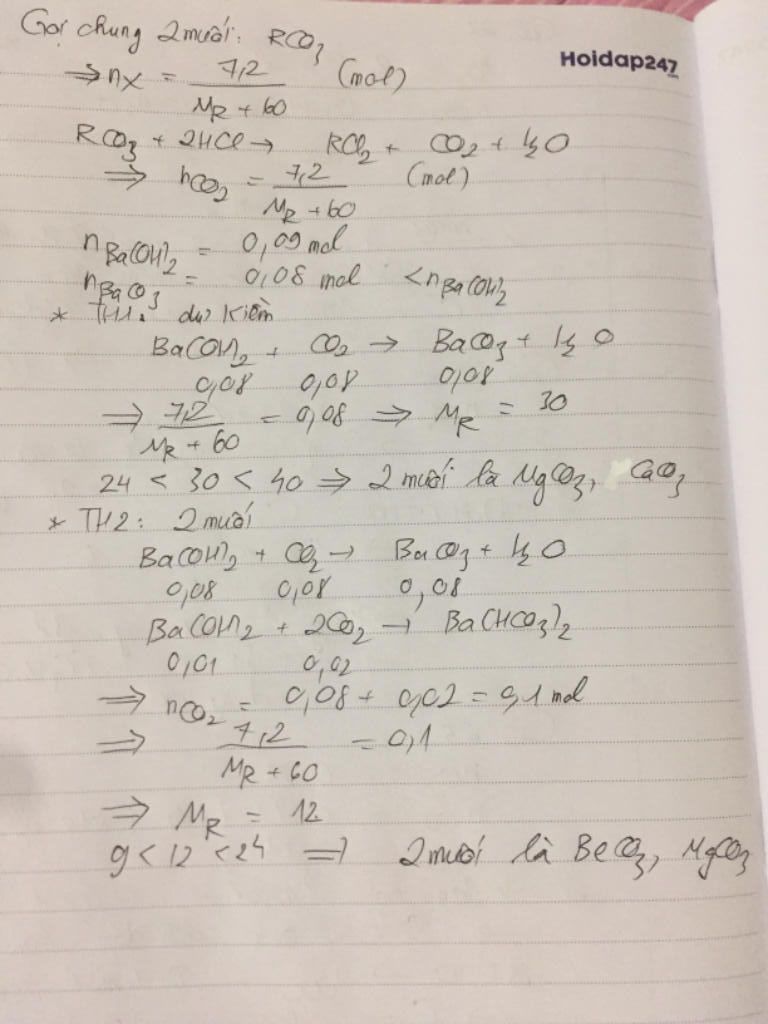 Gọi chung 2 muối: RCO3
Hoidap247
.com
⇒ nX = 7,2 / (MR + 60) (mol)
RCO3 + 2HCl → RCl2 + CO2 + H2O
⇒ nCO2 = 7,2 / (MR + 60) (mol)
nBa(OH)2 = 0,09 mol
nBaCO3 = 0,08 mol < nBa(OH)2
* TH1: dư kiềm
Ba(OH)2 + CO2 → BaCO3 + H2O
0,08 0,08 0,08
⇒ 7,2 / (MR + 60) = 0,08 ⇒ MR = 30
24 < 30 < 40 ⇒ 2 muối là MgCO3, CaCO3
* TH2: 2 muối
Ba(OH)2 + CO2 → BaCO3 + H2O
0,08 0,08 0,08
Ba(OH)2 + 2CO2 → Ba(HCO3)2
0,01 0,02
⇒ nCO2 = 0,08 + 0,02 = 0,1 mol
⇒ 7,2 / (MR + 60) = 0,1
⇒ MR = 12
9 < 12 < 24 ⇒ 2 muối là BeCO3, MgCO3